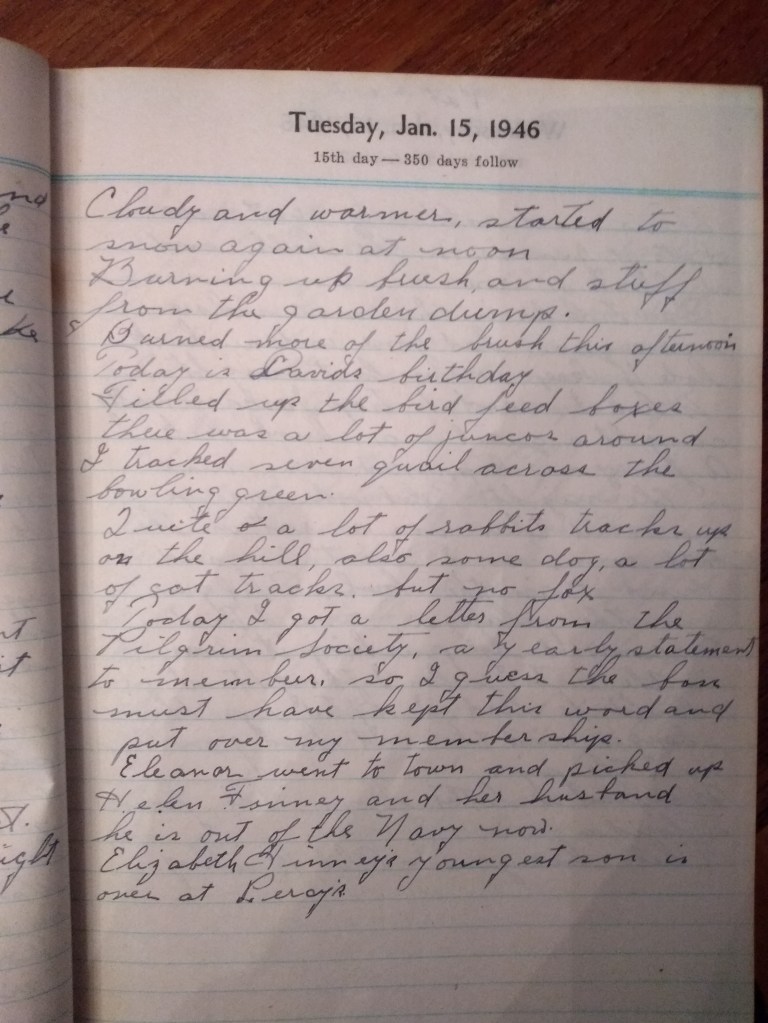 nd
e
e
ke
nt
it
T.
ught
Tuesday, Jan. 15, 1946
15th day — 350 days follow
Cloudy and warmer, started to
snow again at noon
Burning up brush, and stuff
from the garden dump.
Burned more of the brush this afternoon
Today is Davids birthday
Filled up the bird feed boxes
there was a lot of juncos around
I tracked seven quail across the
bowling green.
Quite a lot of rabbits tracks up
on the hill, also some dog, a lot
of cat tracks. but no fox
Today I got a letter from the
Pilgrim Society, a yearly statement
to member. so I guess the boss
must have kept this word and
put over my membership.
Eleanor went to town and picked up
Helen Finney and her husband
he is out of the Navy now.
Elizabeth Finney's youngest son is
over at Percy's